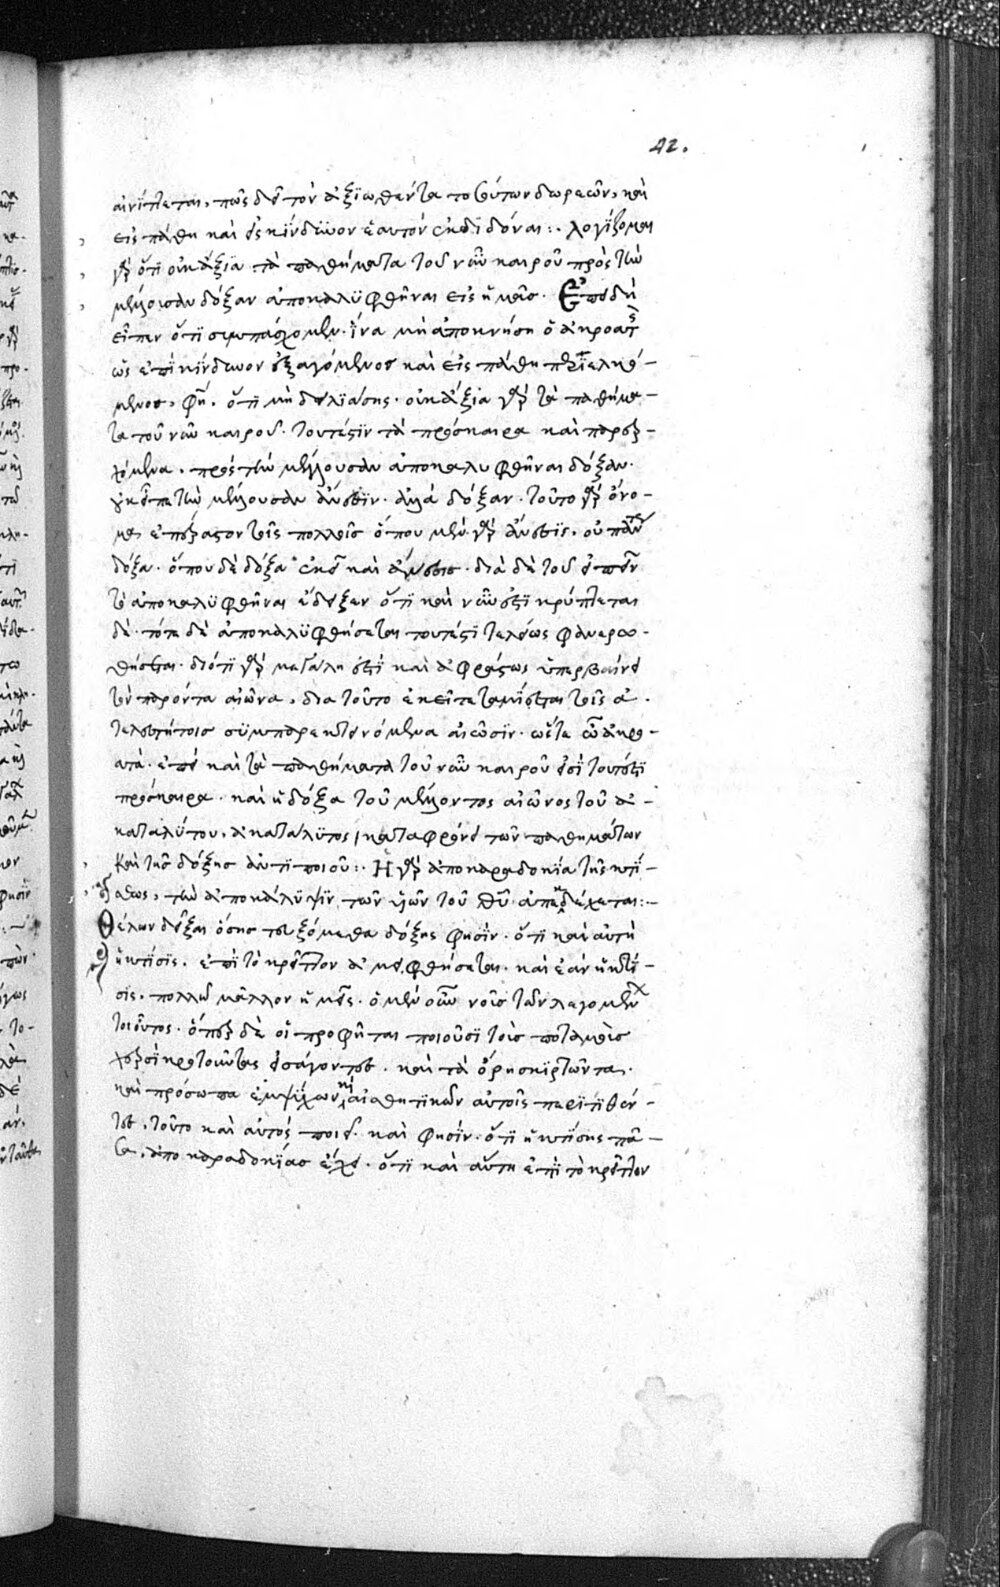 42.
αἰνίττεται, πῶς δεῖ τὸν ἀξϊωθέντα τοσούτων δωρεῶν, καὶ
εἰς πάθη καὶ εἰς κίνδυνον ἑαυτὸν ἐκδϊδόναι :· λογΐζομαι
γὰρ ὅτϊ οὐκ ἄξϊα τὰ παθήματα τοῦ νῦν καιροῦ πρὸς τὴν
μέλλουσαν δόξαν ἀποκαλϋφθῆναι εἰς ἡμᾶς. Ἐπειδὴ
εἶπεν ὅτϊ συμπάσχομεν. ἵνα μὴ ἀποκνήση ὁ ἀκροατὴς
ὡς ἐπὶ κίνδυνον ἐξαγόμενος καὶ εἰς πάθη περιελκό-
μενος, φησὶ. ὅτϊ μὴ δειλϊάσης. οὐκ ἄξϊα γὰρ τὰ παθήμα-
τα τοῦ νῦν καιροῦ. τουτέστϊν τὰ πρόσκαιρα καὶ παρερ-
χόμενα. πρὸς τὴν μέλλουσαν ἀποκαλυφθῆναι δόξαν.
οὐκ εἶπε τὴν μέλλουσαν ἄνεσϊν. ἀλλὰ δόξαν. τοῦτο γὰρ ὄνο-
μα ἐπέραστον τοῖς πολλοῖς ὅπου μὲν γὰρ ἄνεσϊς, οὐ πάντως
δόξα. ὅπου δὲ δόξα ἐκεῖ καὶ ἄνεσις. διὰ δὲ τοῦ εἰπεῖν
τὸ ἀποκαλϋφθῆναι ἔδειξεν ὅτϊ καὶ νῦν ἐστϊ κρύπτεται
δὲ. τότε δὲ ἀποκαλϋφθήσεται τουτέστϊ τελείως φανερω-
θήσεται. διότϊ γὰρ μεγάλη ἐστὶ καὶ ἀφράστως ὑπερβαίνει
τὸν παρόντα αἰῶνα, δια τοῦτο ἐκεῖ τεταμίευται τοῖς ἀ-
τελευτήτοις σϋμπαρεκτεινόμενα αἰῶσϊν. ὥστε
ἐπεὶ καὶ τὰ παθήματα τοῦ νῦν καιροῦ εἰσὶ τουτέστϊ
πρόσκαιρα. καὶ ἡ δόξα τοῦ μέλλοντος αἰῶνος τοῦ ἀ-
καταλύτου, ἀκατάλϋτος, καταφρόνει τῶν παθημάτων
Καὶ τῆς δόξης ἀντϊποιοῦ :· Ἡ γὰρ ἀποκαραδοκΐα τῆς κτΐ-
σεως, τὴν ἀποκάλϋψϊν τῶν ὑϊῶν τοῦ θεοῦ ἀπεκδέχεται :-
Θέλων δεῖξαι ὅσης τευξόμεθα δόξης φησϊν. ὅτϊ καὶ αὐτὴ
ἡ κτΐσϊς. ἐπϊ τὸ κρεῖττον ἀμειφθήσεται. καὶ ἐὰν ἡ κτΐ-
σϊς, πολλῶ μᾶλλον ἡμεῖς. ὁ μὲν οὖν νοῦς τῶν λεγομένων
τοιοῦτος. ὅπερ δὲ οἱ προφῆται ποιοῦσϊ τοὺς ποταμοὺς
χερσὶ κροτοῦντας εἰσάγοντες. καὶ τὰ ὄρη σκϊρτῶντα.
καὶ πρόσωπα ἐμψΰχων καὶ αἰσθητϊκῶν αὐτοῖς περϊτϊθέν-
τες, τοῦτο καὶ αὐτός ποιεῖ καὶ φησϊν. ὅτϊ ἡ κτΐσης πᾶ-
σα, ἀποκαραδοκΐας ἔχει. ὅτϊ καὶ αὕτη ἐπϊ τὸ κρεῖττον